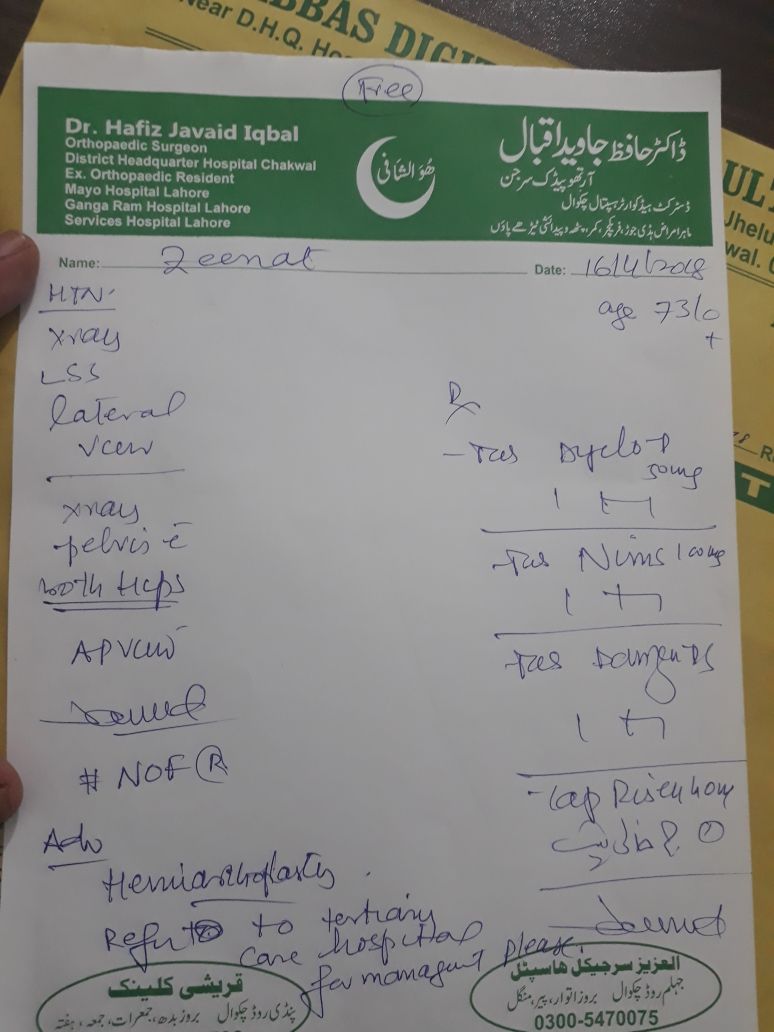 ABBAS DIGIT
Near D.H.Q. Hos
Free
Dr. Hafiz Javaid Iqbal
Orthopaedic Surgeon
District Headquarter Hospital Chakwal
Ex. Orthopaedic Resident
Mayo Hospital Lahore
Ganga Ram Hospital Lahore
Services Hospital Lahore
هُوَ الشافی
ڈاکٹر حافظ جاوید اقبال
آرتھوپیڈک سرجن
ڈسٹرکٹ ہیڈکوارٹر ہسپتال چکوال
ماہر امراض ہڈی جوڑ، فریکچر، کمر، پٹھہ و پیدائشی ٹیڑھے پاؤں
UL
Jhelu
wal.
Name: Zeenat
Date: 16/4/2018
age 73/0
HTN
xray
LSS
lateral
view
xray
pelvis c̄
both Hips
AP view
# NOF Ⓡ
Adv
Hemiarthroplasty
Refer to tertiary
care hospital
for managent please.
Rx
- Tab Dyclo-P
50mg
- Tab Nims 100mg
- Tab
- Cap Risek 40mg
قریشی کلینک
پنڈی روڈ چکوال بروز بدھ، جمعرات، جمعہ، ہفتہ
العزیز سرجیکل ہاسپٹل
جہلم روڈ چکوال بروز اتوار، پیر، منگل
0300-5470075